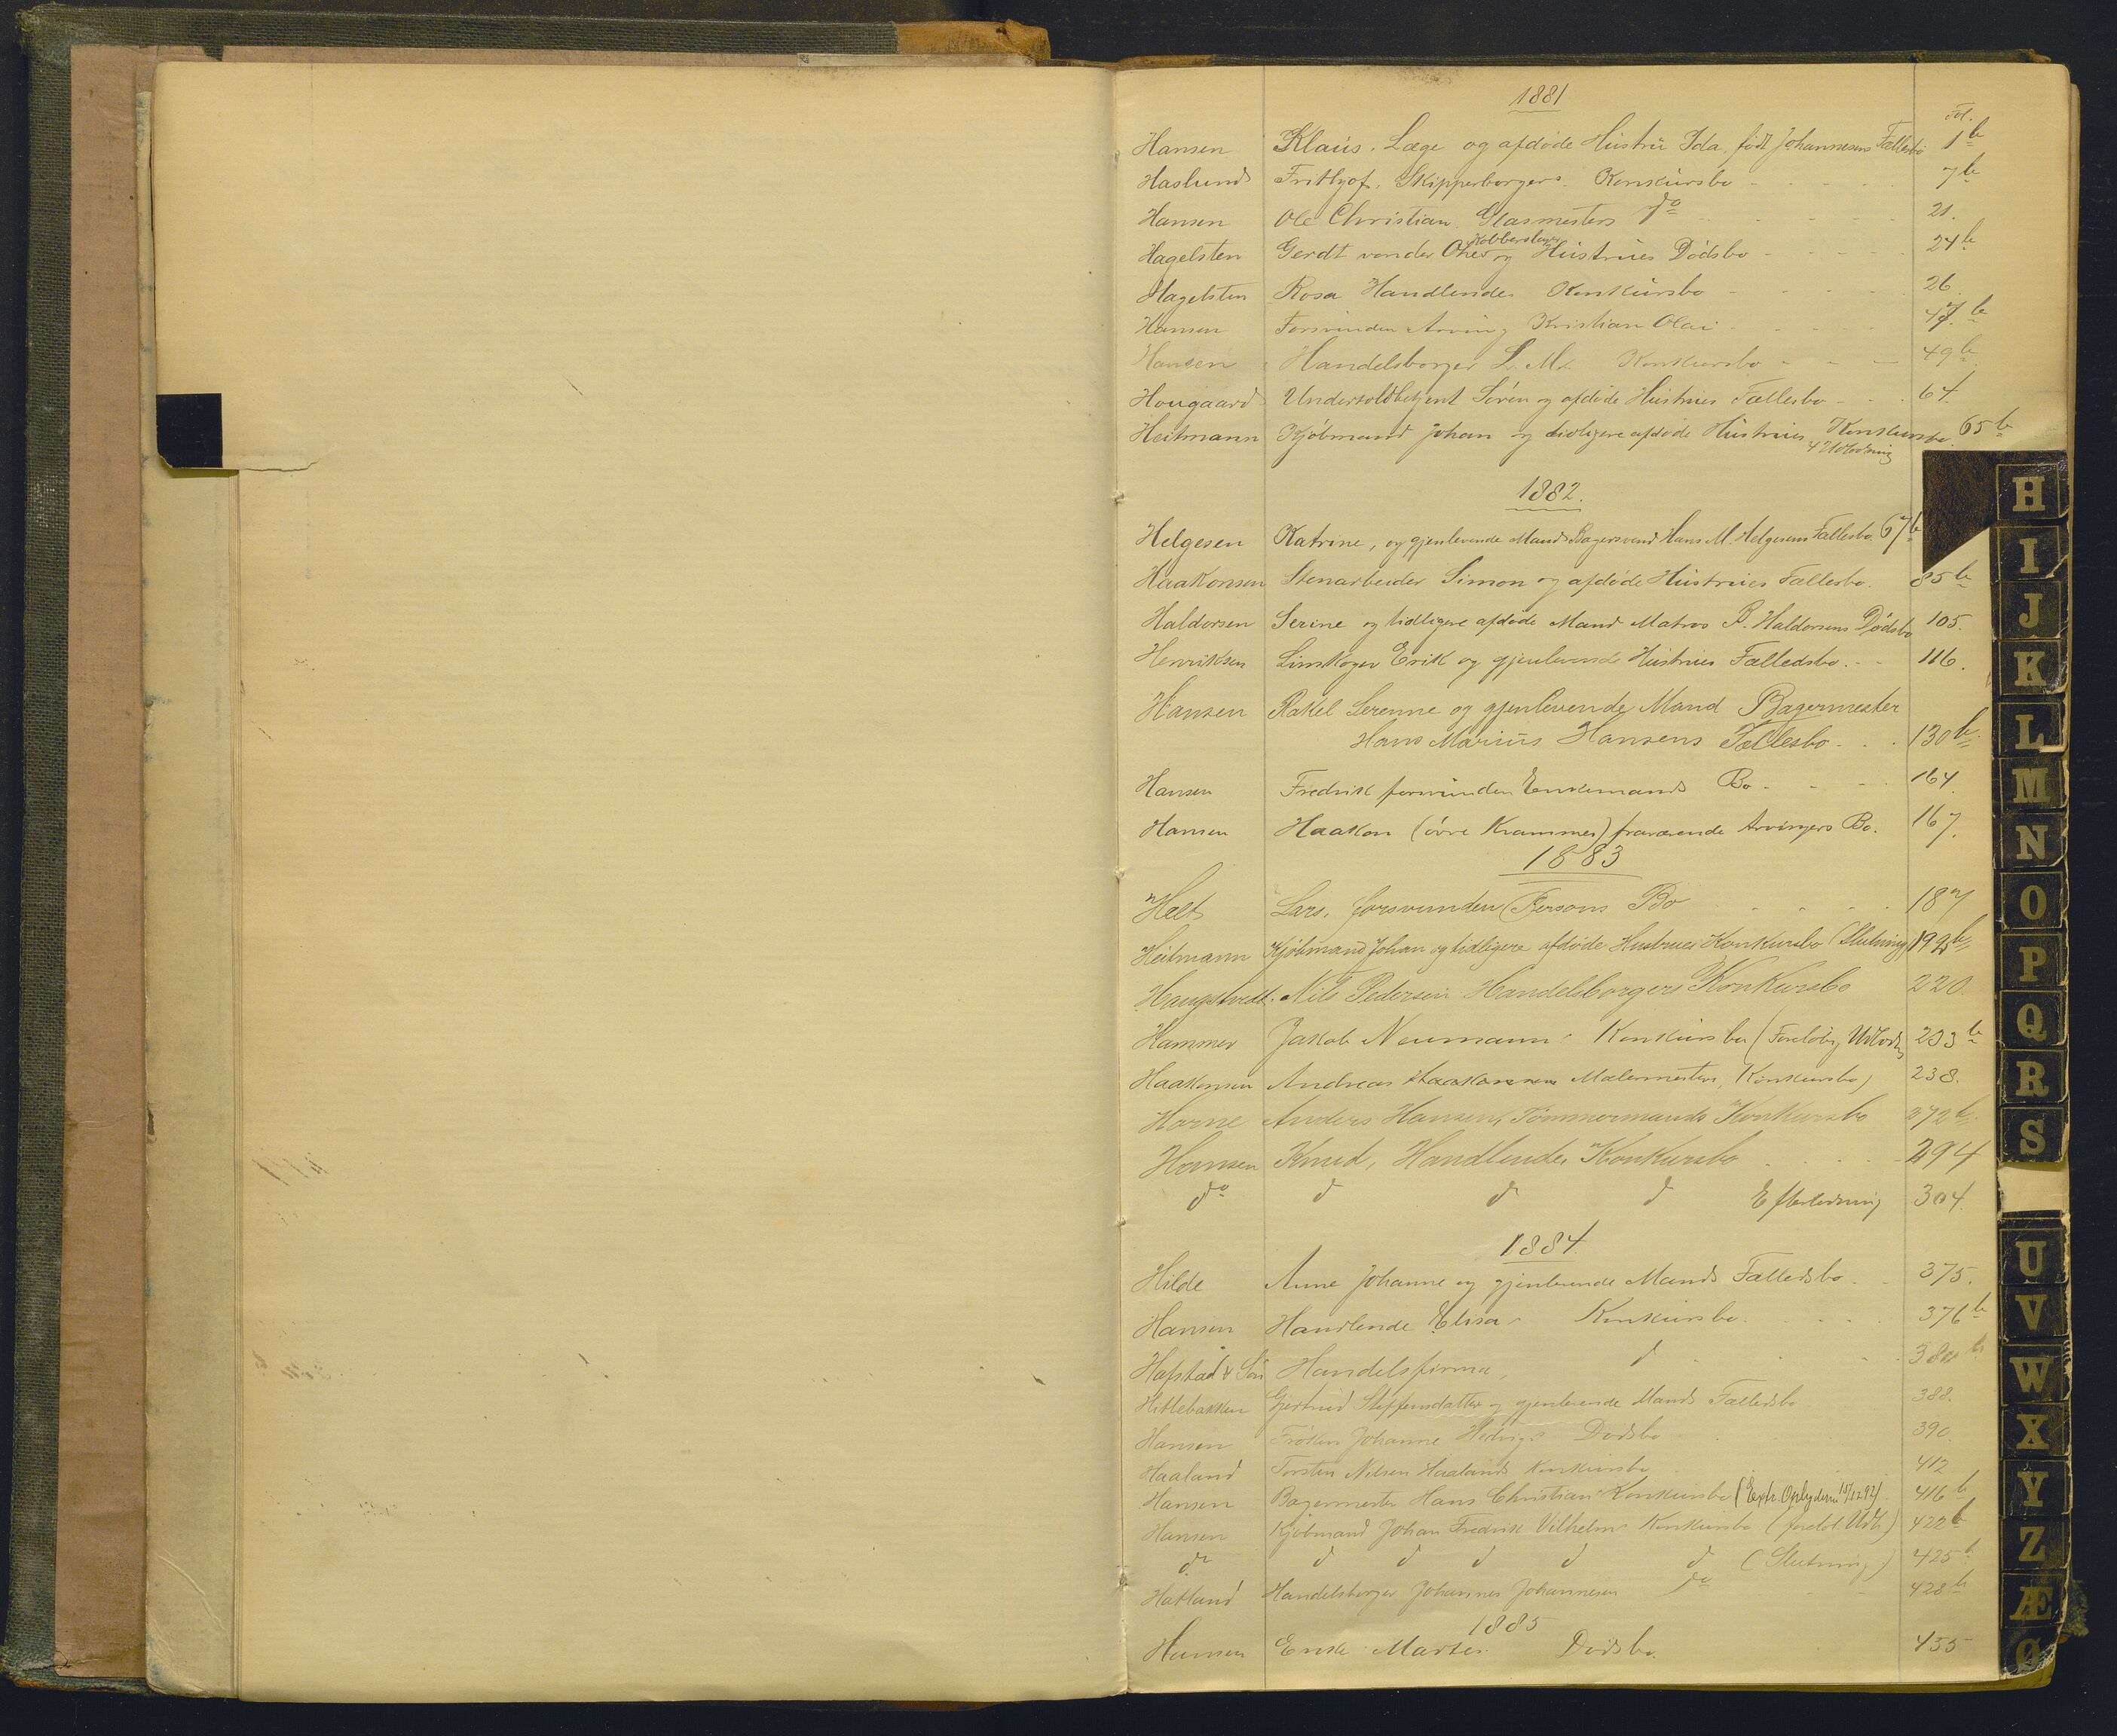 1881
Fol.
Hansen Klaus. Læge og afdøde Hustru Ida, født Johannesens Fællesbo 1 b
Haslund Frithjof, Skipperborgers Konkursbo - - - - 7 b
Hansen Ole Christian Glasmesters do - - - 21.
Kobberslager
Hagelsten Gerdt vonder Ohes og Hustrues Dødsbo - - - 24 b
Hagelsten Rosa Handlendes Konkursbo - - - 26
Hansen Forsvunden Arving Kristian Olai - - - 47 b
Hansen Handelsborger L. M. Konkursbo - - - 49 b
Hougaard Undertoldbetjent Sören og afdøde Hustrues Fællesbo - - 64.
Heitmann Kjøbmand Johan og tidligere afdøde Hustrues Konkursbo. 65 b
1882.
Helgesen Katrine, og gjenlevende Mands Bagersvend Hans M. Helgesens Fællesbo. 67 b
Haakonsen Stenarbeider Simon og afdøde Hustrues Fællesbo. 85 b
Haldorsen Serine og tidligere afdøde Mand Matros B. Haldorsens Dødsbo 105.
Henriksen Erik og gjenlevende Hustrues Fælledsbo. - - 116.
Hansen Rakel Serenne og gjenlevende Mand Bagermester
Hans Marius Hansens Fællesbo - - 130 b
Hansen Fredrik forsvunden Enkemands Bo - - - 164.
Hansen Haakon (övre Krammer) fraværende Arvingers Bo. 167.
1883
Helt Lars, forsvunden Persons Bo - - - 187
Heitmann Kjøbmand Johan og tidligere afdøde Hustrues Konkursbo (Slutning) 192 b
Haugstvedt. Nils Pedersen Handelsborgers Konkursbo 220
Hammer Jakob Neumann Konkursbo (Foreløbig Udlodn 233 b
Haakonsen Andreas Haakonsen Malermesters, Konkursbo 238.
Horne Anders Hansen, Tömmermands Konkursbo 272 b
Hansen Knud, Handlendes Konkursbo - - - 294
do d d d Efterlodning 304.
1884.
Hilde Anne Johanne og gjenlevende Mands Fælledsbo. - 375.
Hansen Handlende Elisa Konkursbo. - - - 376 b
Hafstad & Søn Handelsfirma, d - - 380 b
Hitlebakken Gjertrud Steffensdatter og gjenlevende Mands Fælledsbo 388.
Hansen Frøken Johanne Hedvigs Dødsbo 390
Haaland Torsten Nilsen Haalands Konkursbo 412
Hansen Bagermester Hans Christian Konkursbo 416 b
Hansen Kjøbmand Johan Fredrik Vilhelm Konkursbo (foreløb. Udl.) 422 b
do d d d d d (Slutning) 425 b
Hatland Handelsborger Johannes Johannesen do - - 428 b
1885
Hansen Enke Marthe Dødsbo. 455
H
I
J
K
L
M
N
O
P
Q
R
S
U
V
W
X
Y
Z
Æ
Ø